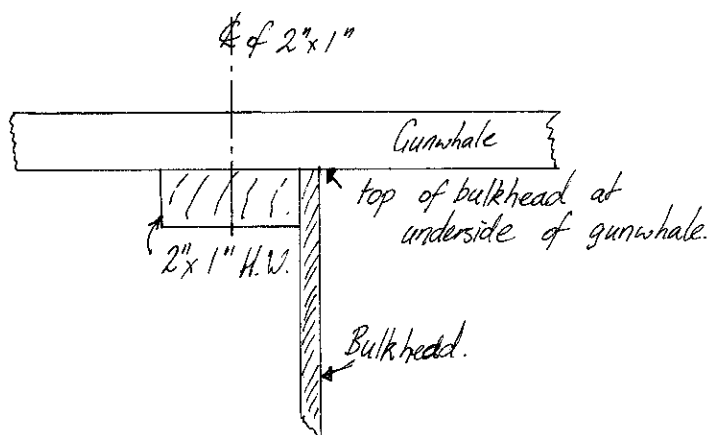 ℄ of 2"x1"
Gunwhale
top of bulkhead at
underside of gunwhale.
2"x1" H.W.
Bulkhead.